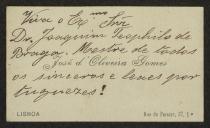 Viva o Ex.mo Snr
Dr. Joaquim Teophilo de
Braga. Mestre de todos
José d'Oliveira Gomes
os sinceros e leaes por
tuguezes!
LISBOA
Rua do Paraizo, 17, 1.º